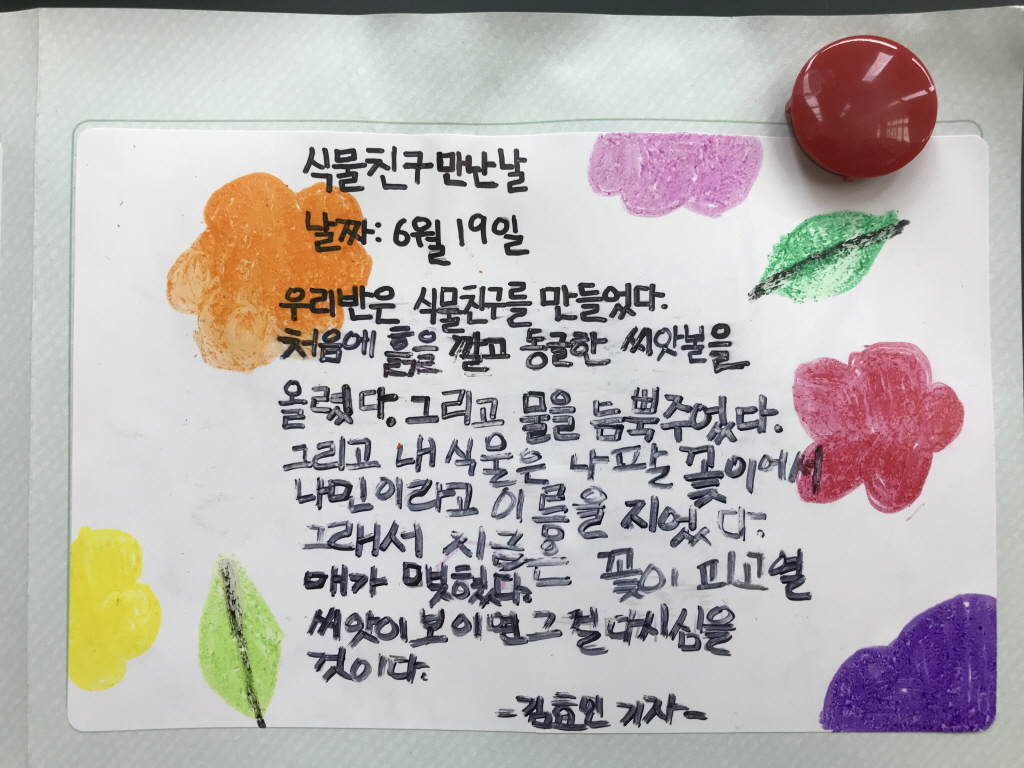 식물친구만난날
날짜: 6월 19일
우리반은 식물친구를 만들었다.
처음에 흙을 깔고 동글한 씨앗볼을
올렸다. 그리고 물을 듬뿍주었다.
그리고 내 식물은 나팔 꽃이에서
나민이라고 이름을 지었다.
그래서 지금은 꽃이 피고 열
매가 맺혔다.
씨앗이 보이면 그걸 다시심을
것이다.
-김효민 기자-